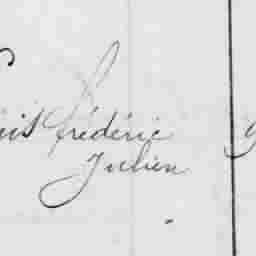 frédéric
Julien